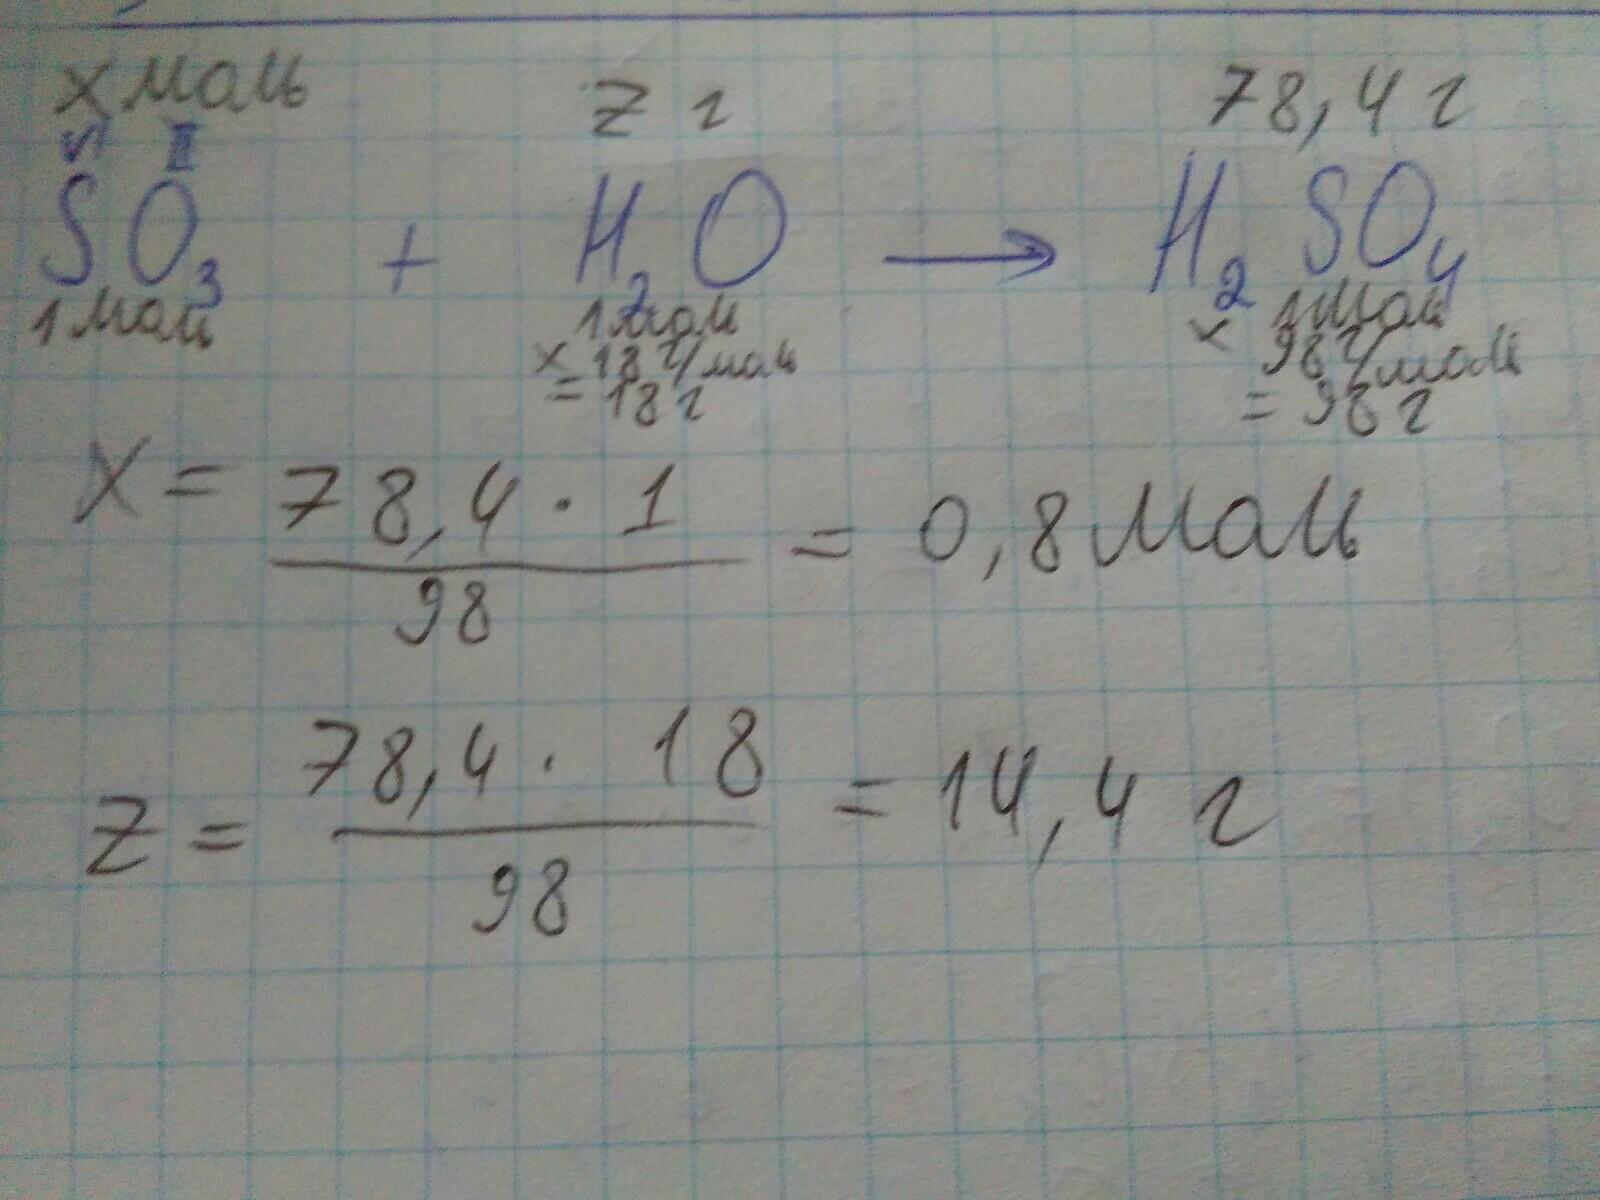 х моль z г 78,4 г
VI II
SO₃ + H₂O → H₂SO₄
1 моль 1 моль 1 моль
× 18 г/моль × 98 г/моль
= 18 г = 98 г
X = 78,4 · 1 / 98 = 0,8 моль
z = 78,4 · 18 / 98 = 14,4 г